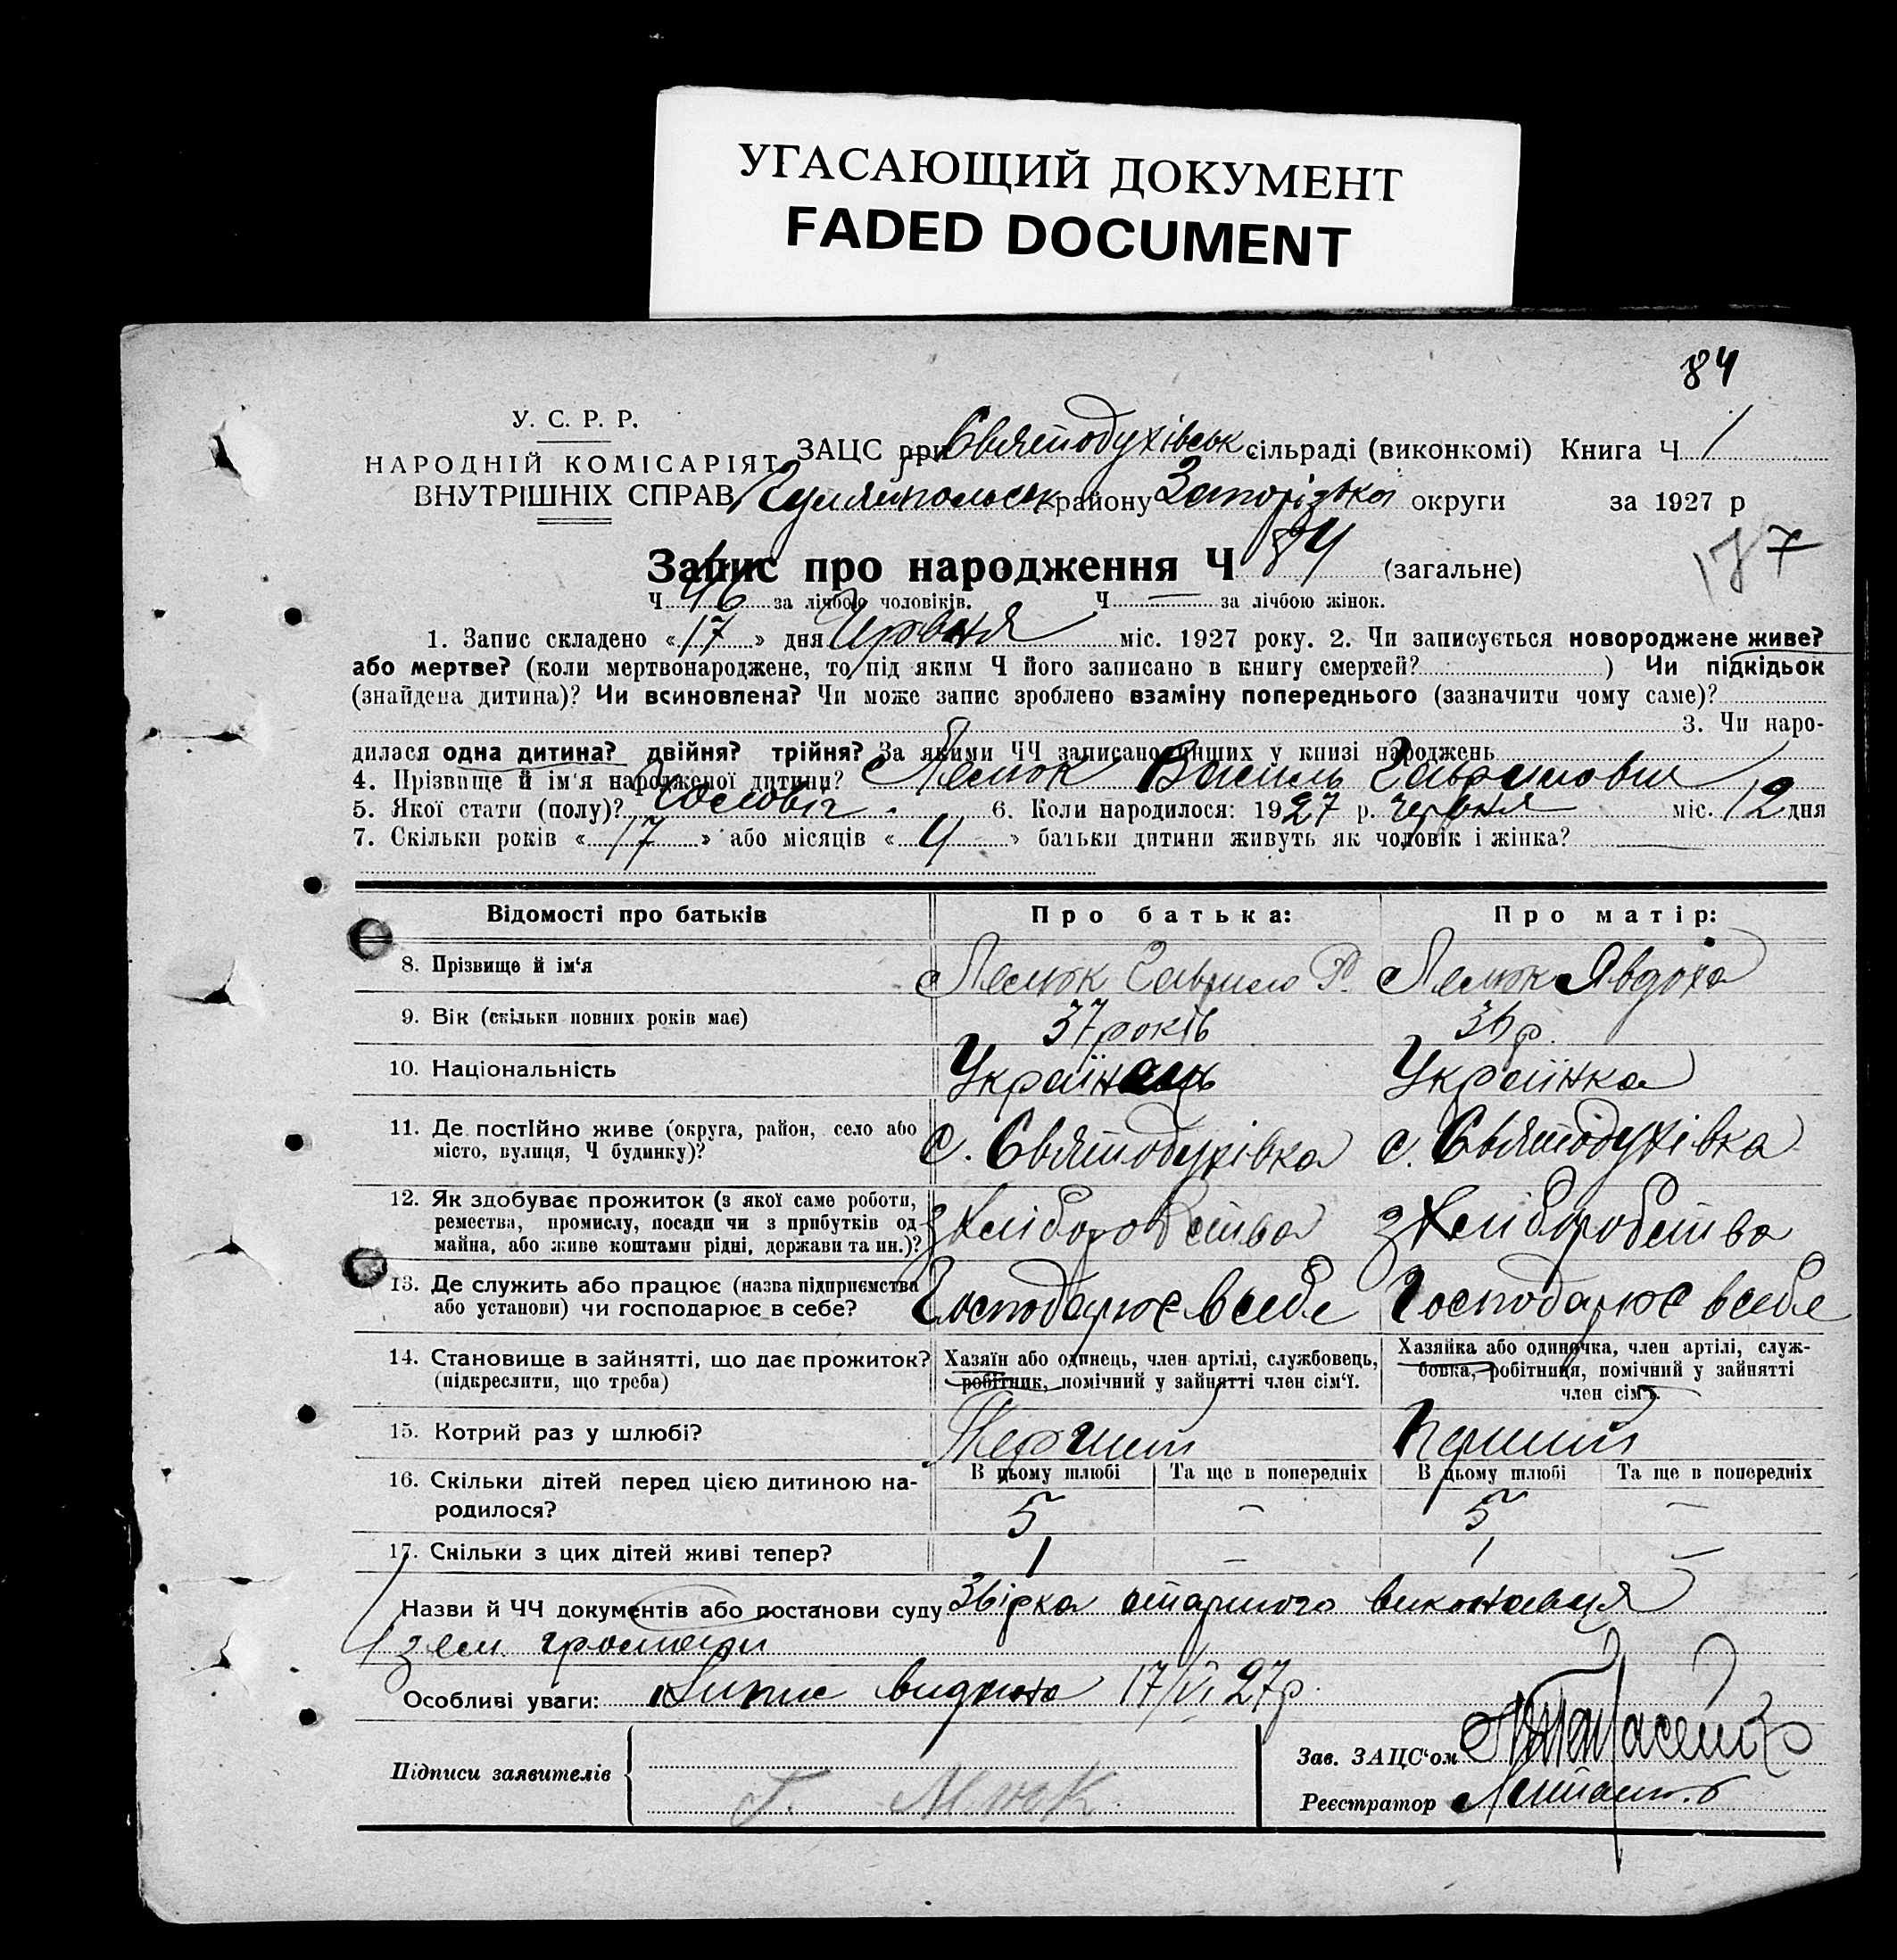 УГАСАЮЩИЙ ДОКУМЕНТ
FADED DOCUMENT
84
У. С. Р. Р.
НАРОДНІЙ КОМІСАРІЯТ
ВНУТРІШНІХ СПРАВ
ЗАЦС при Святодухівськ сільраді (виконкомі) Книга Ч 1
Гуляйпольськ району Запорізької округи за 1927 р
177
Запис про народження Ч 84 (загальне)
Ч 46 за лічбою чоловіків. Ч — за лічбою жінок.
1. Запис складено «17» дня Червня міс. 1927 року. 2. Чи записується новороджене живе?
або мертве? (коли мертвонароджене, то під яким Ч його записано в книгу смертей? ) Чи підкідьок
(знайдена дитина)? Чи всиновлена? Чи може запис зроблено взаміну попереднього (зазначити чому саме)?
3. Чи наро-
дилася одна дитина? двійня? трійня? За якими ЧЧ записано инших у книзі народжень
4. Прізвище й ім'я народженої дитини? Василь Гаврилович
5. Якої стати (полу)? Чоловіч. 6. Коли народилося: 1927 р. червня міс. 12 дня
7. Скільки років «17» або місяців «4» батьки дитини живуть як чоловік і жінка? —
Відомості про батьків Про батька: Про матір:
8. Прізвище й ім'я Гаврило Явдоха
9. Вік (скільки повних років має) 37 років 36 р.
10. Національність Українець Українка
11. Де постійно живе (округа, район, село або
місто, вулиця, Ч будинку)? с. Святодухівка с. Святодухівка
12. Як здобуває прожиток (з якої саме роботи,
ремества, промислу, посади чи з прибутків од
майна, або живе коштами рідні, держави та ин.)? з хліборобства з хліборобства
13. Де служить або працює (назва підприємства
або установи) чи господарює в себе? Господарює в себе Господарює в себе
14. Становище в зайнятті, що дає прожиток?
(підкреслити, що треба)
Хазяїн або одинець, член артілі, службовець,
робітник, помічний у зайнятті член сім'ї.
Хазяйка або одиночка, член артілі, служ-
бовка, робітниця, помічний у зайнятті
член сім'ї.
15. Котрий раз у шлюбі? Перший Перший
В цьому шлюбі Та ще в попередніх В цьому шлюбі Та ще в попередніх
16. Скільки дітей перед цією дитиною на-
родилося? 5 — 5 —
17. Скільки з цих дітей живі тепер? 1 — 1 —
Назви й ЧЧ документів або постанови суду Звірка старшого виконавця
зем. громади
Особливі уваги: Випис видано 17/VI 27р.
Підписи заявителів
Г.
Зав. ЗАЦС'ом
Реєстратор